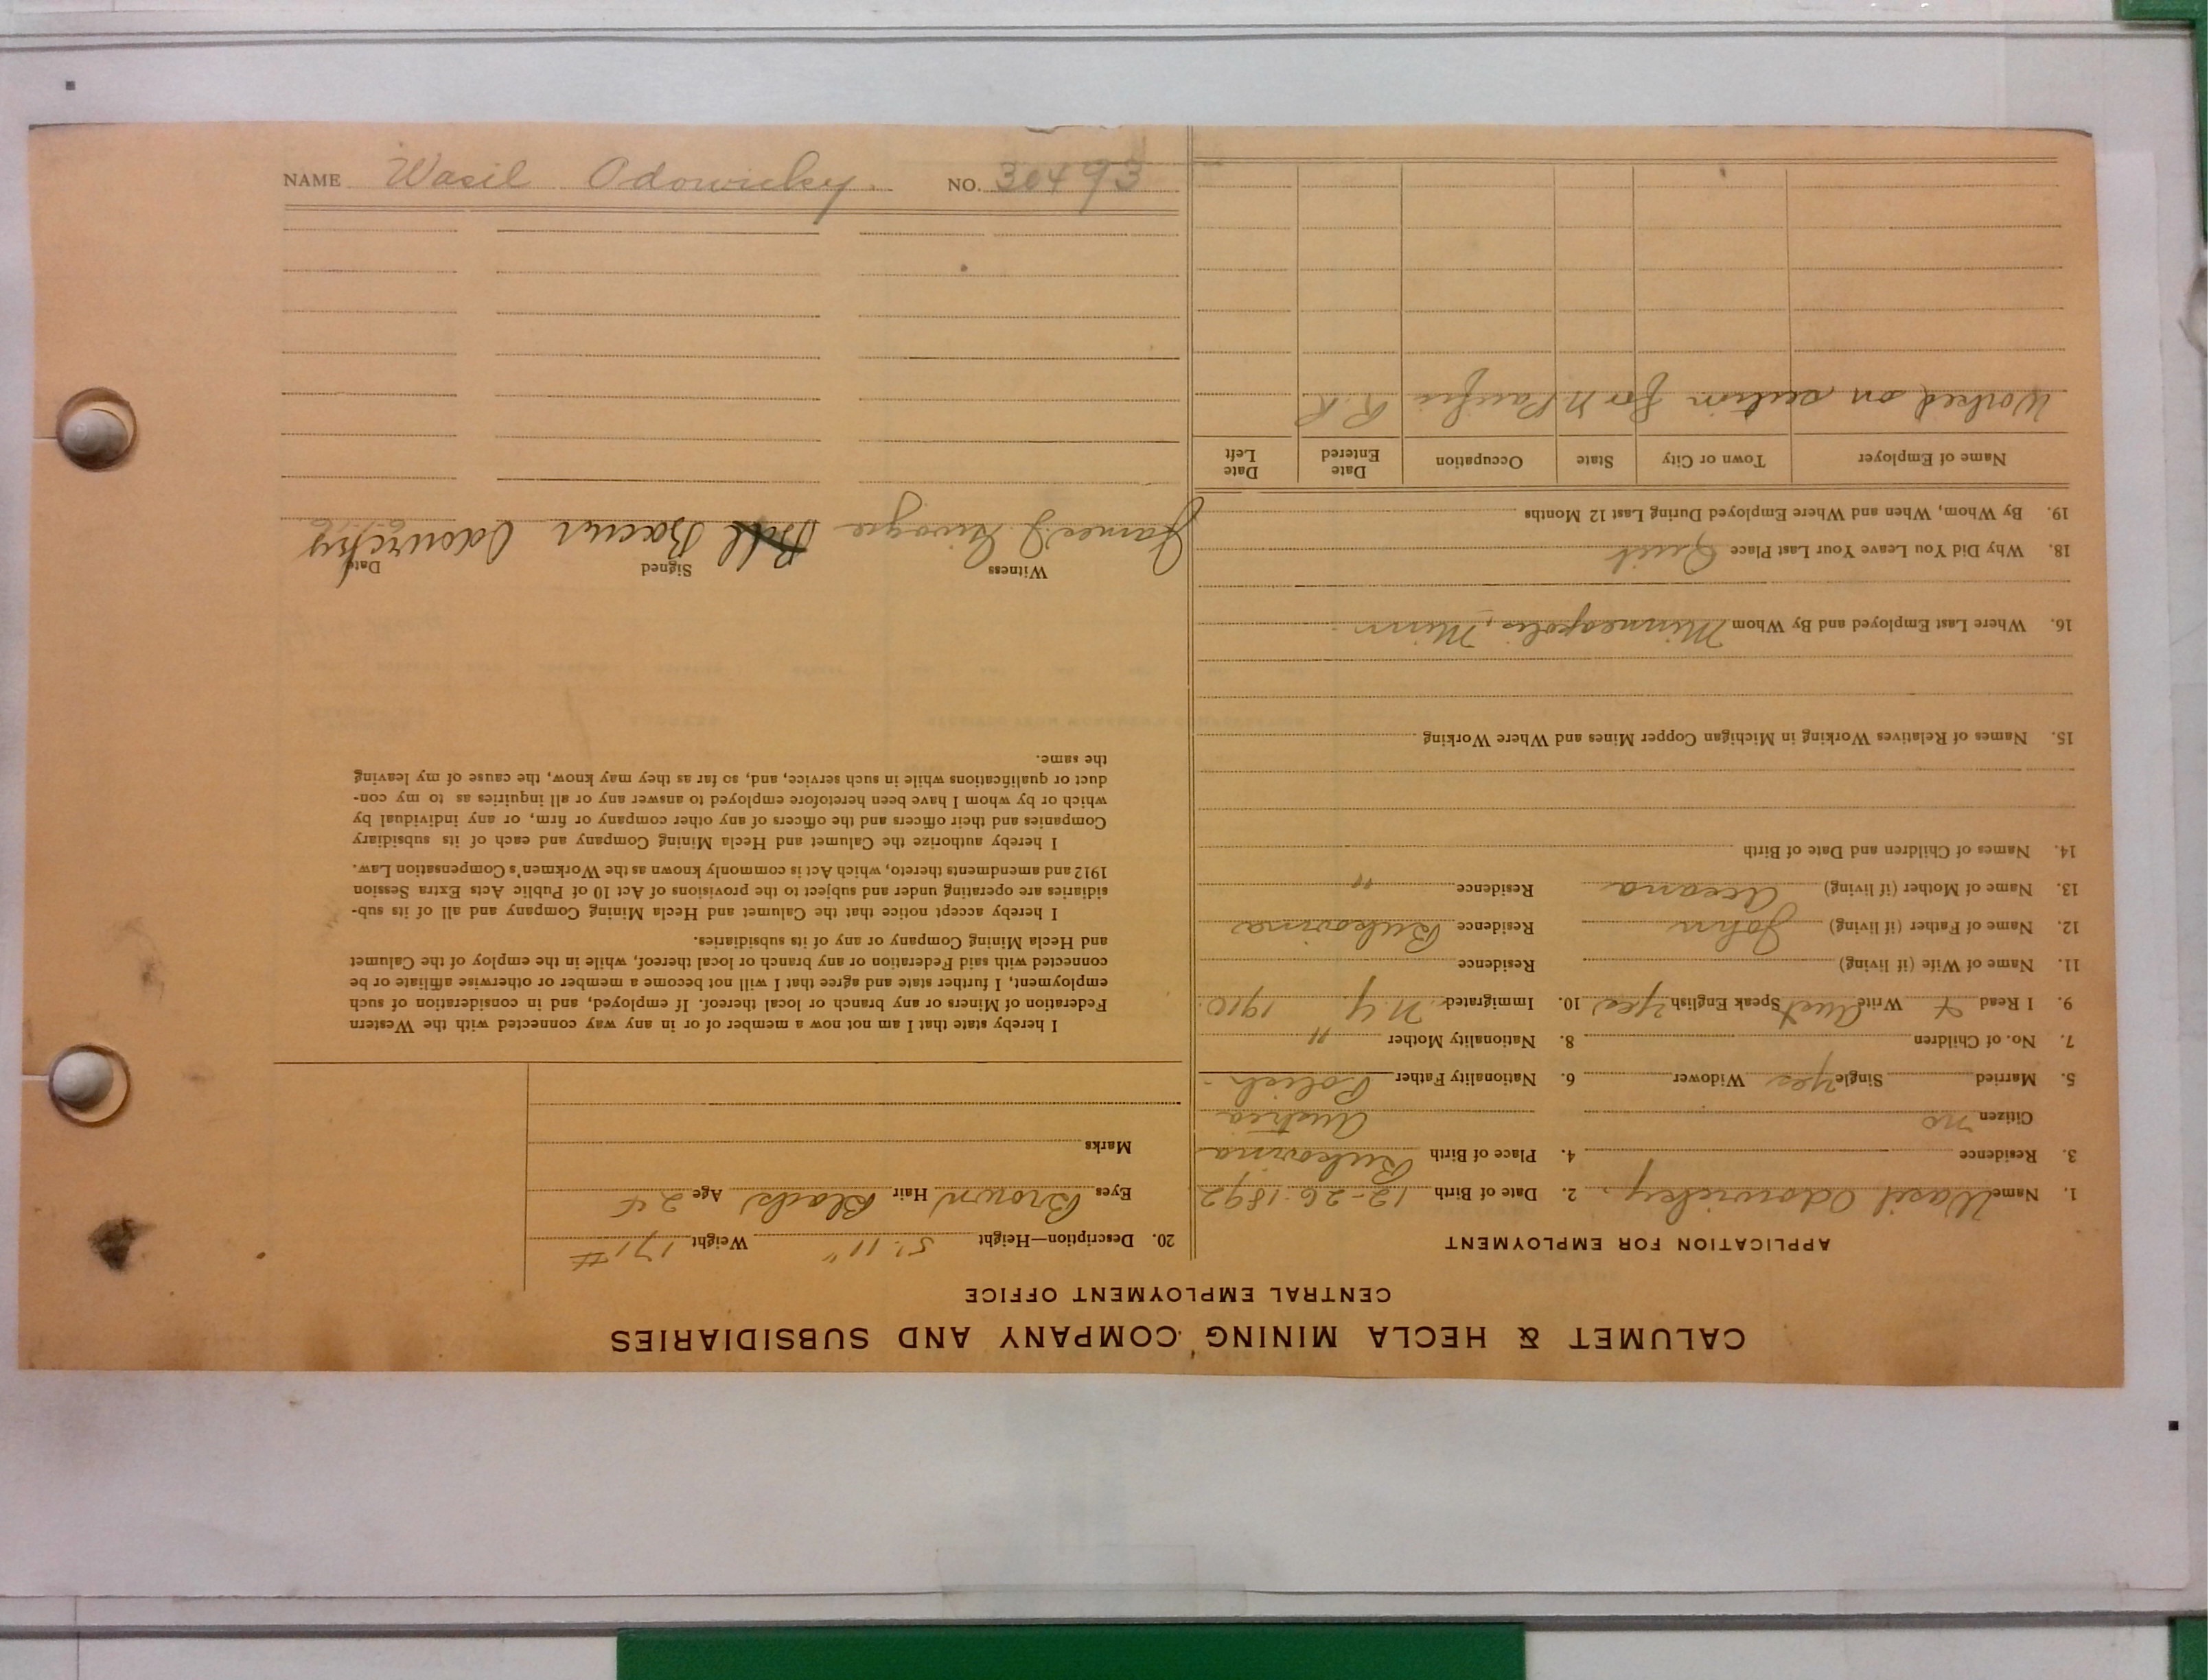 CALUMET & HECLA MINING COMPANY AND SUBSIDIARIES
CENTRAL EMPLOYMENT OFFICE
APPLICATION FOR EMPLOYMENT
1. Name Wasil Odowicky. 2. Date of Birth 12-26-1892
3. Residence 4. Place of Birth Bukovina
Citizen no Austria
5. Married Single yes Widower 6. Nationality Father Polish
7. No. of Children 8. Nationality Mother "
9. I Read + Write Aust Speak English yes 10. Immigrated N.Y. 1910.
11. Name of Wife (if living) Residence
12. Name of Father (if living) John Residence Bukovina
13. Name of Mother (if living) Residence "
14. Names of Children and Date of Birth
15. Names of Relatives Working in Michigan Copper Mines and Where Working
16. Where Last Employed and By Whom Minneapolis, Minn.
18. Why Did You Leave Your Last Place Quit
19. By Whom, When and Where Employed During Last 12 Months
Name of Employer Town or City State Occupation Date Entered Date Left
Worked on section for N Pacific R.R
20. Description—Height 5' 11" Weight 171 #
Eyes Brown Hair Black Age 24
Marks
I hereby state that I am not now a member of or in any way connected with the Western
Federation of Miners or any branch or local thereof. If employed, and in consideration of such
employment, I further state and agree that I will not become a member or otherwise affiliate or be
connected with said Federation or any branch or local thereof, while in the employ of the Calumet
and Hecla Mining Company or any of its subsidiaries.
I hereby accept notice that the Calumet and Hecla Mining Company and all of its sub-
sidiaries are operating under and subject to the provisions of Act 10 of Public Acts Extra Session
1912 and amendments thereto, which Act is commonly known as the Workmen's Compensation Law.
I hereby authorize the Calumet and Hecla Mining Company and each of its subsidiary
Companies and their officers and the officers of any other company or firm, or any individual by
which or by whom I have been heretofore employed to answer any or all inquiries as to my con-
duct or qualifications while in such service, and, so far as they may know, the cause of my leaving
the same.
Witness Signed Date
James J.
NAME Wasil Odowicky. NO. 30493